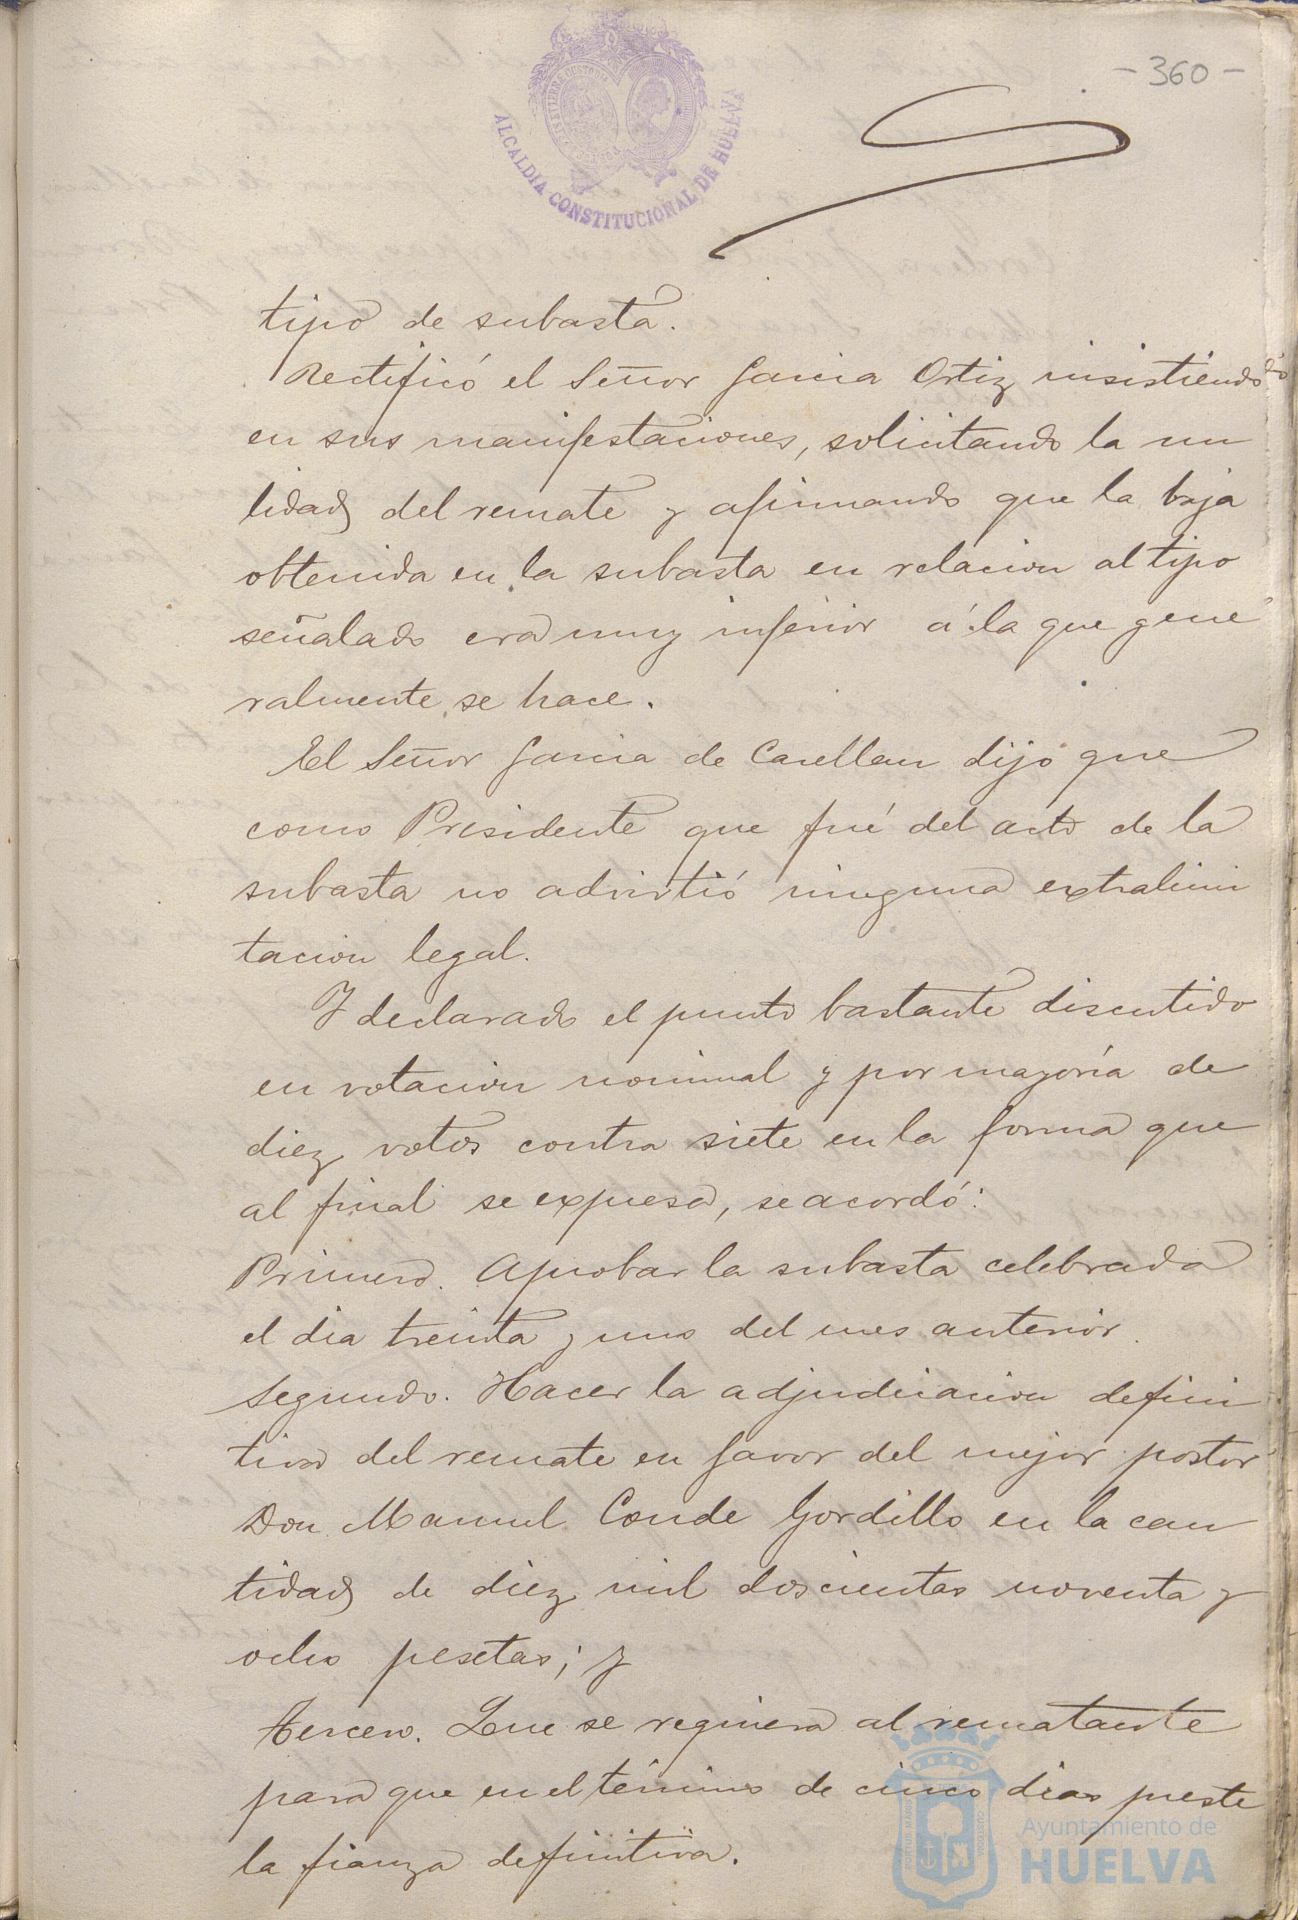 - 360 -
ALCALDIA CONSTITUCIONAL DE HUELVA
tipo de subasta.
Rectificó el Señor Garcia Ortiz insistiendo
en sus manifestaciones, solicitando la nu
lidad del remate y afirmando que la baja
obtenida en la subasta en relacion al tipo
señalado era muy inferior á la que gene
ralmente se hace.
El Señor Garcia de Carellan dijo que
como Presidente que fué del acto de la
subasta no advirtió ninguna extralimi
tacion legal.
Y declarado el punto bastante discutido
en votacion nominal y por mayoría de
diez votos contra siete en la forma que
al final se expresa, se acordó:
Primero. Aprobar la subasta celebrada
el dia treinta y uno del mes anterior.
Segundo. Hacer la adjudicacion defini
tiva del remate en favor del mejor postor
Don Manuel Conde Gordillo en la can
tidad de diez mil doscientas noventa y
ocho pesetas; y
Tercero. Que se requiera al rematante
para que en el término de cinco dias preste
la fianza definitiva.
Ayuntamiento de
HUELVA